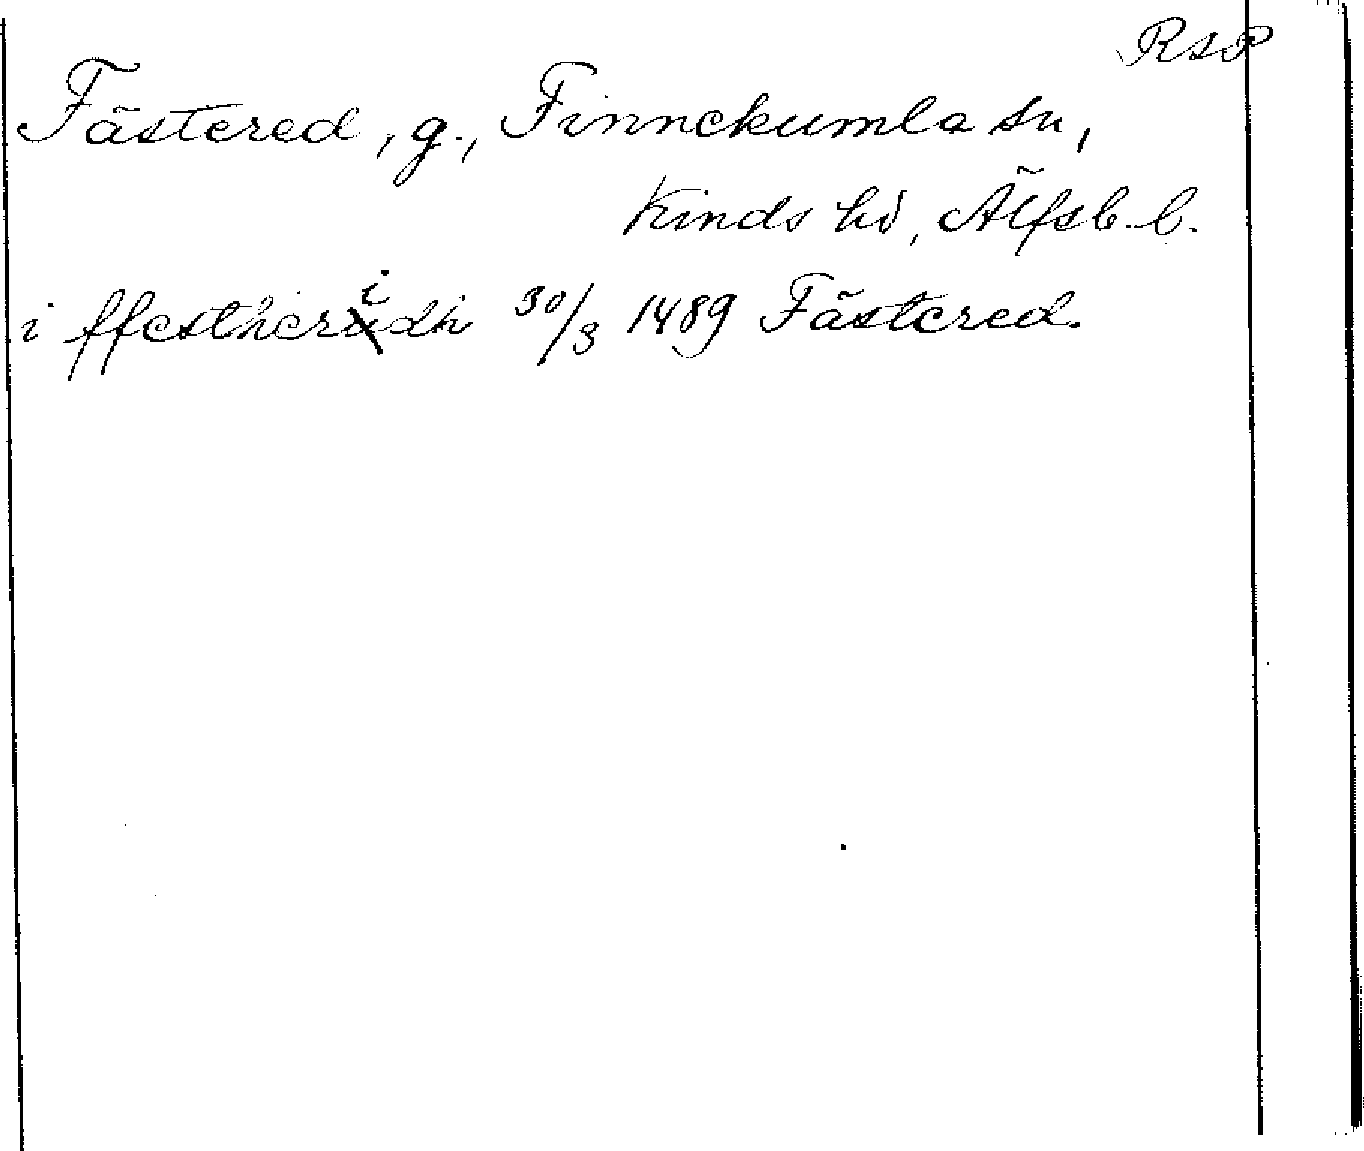 RsP
Fästered, g., Finnekumla sn,
Kinds hd, Älfsb. l.
i ffestheridh 30/3 1489 Fästered.